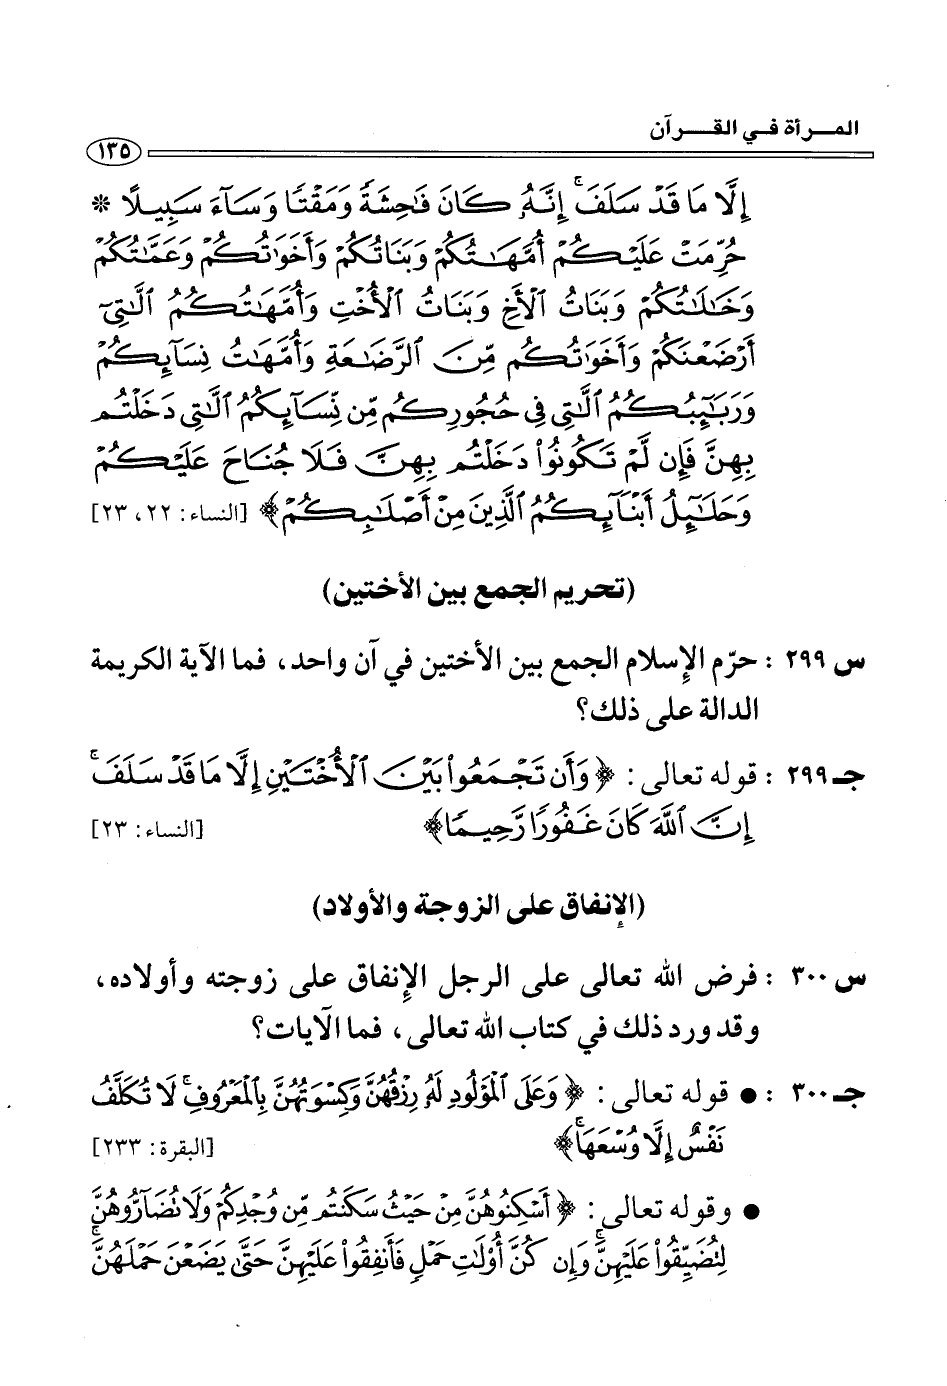 المـــرأة فـــي القـــرآن
١٣٥
إِلَّا مَا قَدْ سَلَفَ ۚ إِنَّهُۥ كَانَ فَاحِشَةً وَمَقْتًا وَسَآءَ سَبِيلًا *
حُرِّمَتْ عَلَيْكُمْ أُمَّهَـٰتُكُمْ وَبَنَاتُكُمْ وَأَخَوَٰتُكُمْ وَعَمَّـٰتُكُمْ
وَخَـٰلَـٰتُكُمْ وَبَنَاتُ ٱلْأَخِ وَبَنَاتُ ٱلْأُخْتِ وَأُمَّهَـٰتُكُمُ ٱلَّـٰتِىٓ
أَرْضَعْنَكُمْ وَأَخَوَٰتُكُم مِّنَ ٱلرَّضَـٰعَةِ وَأُمَّهَـٰتُ نِسَآئِكُمْ
وَرَبَـٰٓئِبُكُمُ ٱلَّـٰتِى فِى حُجُورِكُم مِّن نِّسَآئِكُمُ ٱلَّـٰتِى دَخَلْتُم
بِهِنَّ فَإِن لَّمْ تَكُونُوا۟ دَخَلْتُم بِهِنَّ فَلَا جُنَاحَ عَلَيْكُمْ
وَحَلَـٰٓئِلُ أَبْنَآئِكُمُ ٱلَّذِينَ مِنْ أَصْلَـٰبِكُمْ﴾ [النساء: ٢٢، ٢٣]
(تحريم الجمع بين الأختين)
س ٢٩٩ : حرّم الإسلام الجمع بين الأختين في آن واحد، فما الآية الكريمة
الدالة على ذلك؟
جـ ٢٩٩ : قوله تعالى: ﴿وَأَن تَجْمَعُوا۟ بَيْنَ ٱلْأُخْتَيْنِ إِلَّا مَا قَدْ سَلَفَ ۗ
إِنَّ ٱللَّهَ كَانَ غَفُورًا رَّحِيمًا﴾ [النساء: ٢٣]
(الإنفاق على الزوجة والأولاد)
س ٣٠٠ : فرض الله تعالى على الرجل الإنفاق على زوجته وأولاده،
وقد ورد ذلك في كتاب الله تعالى، فما الآيات؟
جـ ٣٠٠ : ● قوله تعالى: ﴿وَعَلَى ٱلْمَوْلُودِ لَهُۥ رِزْقُهُنَّ وَكِسْوَتُهُنَّ بِٱلْمَعْرُوفِ ۚ لَا تُكَلَّفُ
نَفْسٌ إِلَّا وُسْعَهَا ۚ﴾ [البقرة: ٢٣٣]
● وقوله تعالى: ﴿أَسْكِنُوهُنَّ مِنْ حَيْثُ سَكَنتُم مِّن وُجْدِكُمْ وَلَا تُضَآرُّوهُنَّ
لِتُضَيِّقُوا۟ عَلَيْهِنَّ ۚ وَإِن كُنَّ أُو۟لَـٰتِ حَمْلٍ فَأَنفِقُوا۟ عَلَيْهِنَّ حَتَّىٰ يَضَعْنَ حَمْلَهُنَّ ۚ